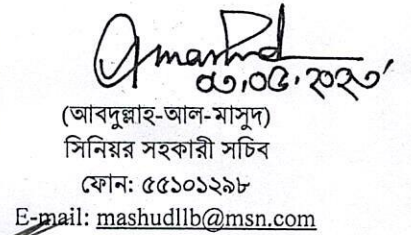 ০৩.০৫.২০২৩
(আবদুল্লাহ-আল-মাসুদ)
সিনিয়র সহকারী সচিব
ফোন: ৫৫১০১২৯৮
E-mail: mashudllb@msn.com